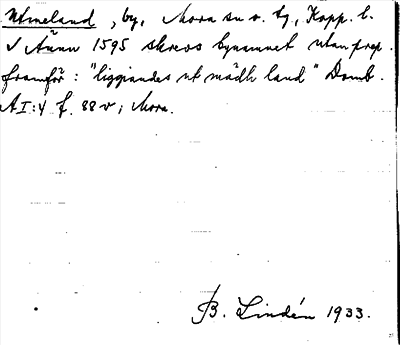 Utmeland, by, Mora sn o. tg., Kopp. l.
Ännu 1595 skrevs bynamnet utan prep.
framför: "liggiandes ut mädh land" Domb.
A I:4 f. 88 v; Mora.
B. Lindén 1933.